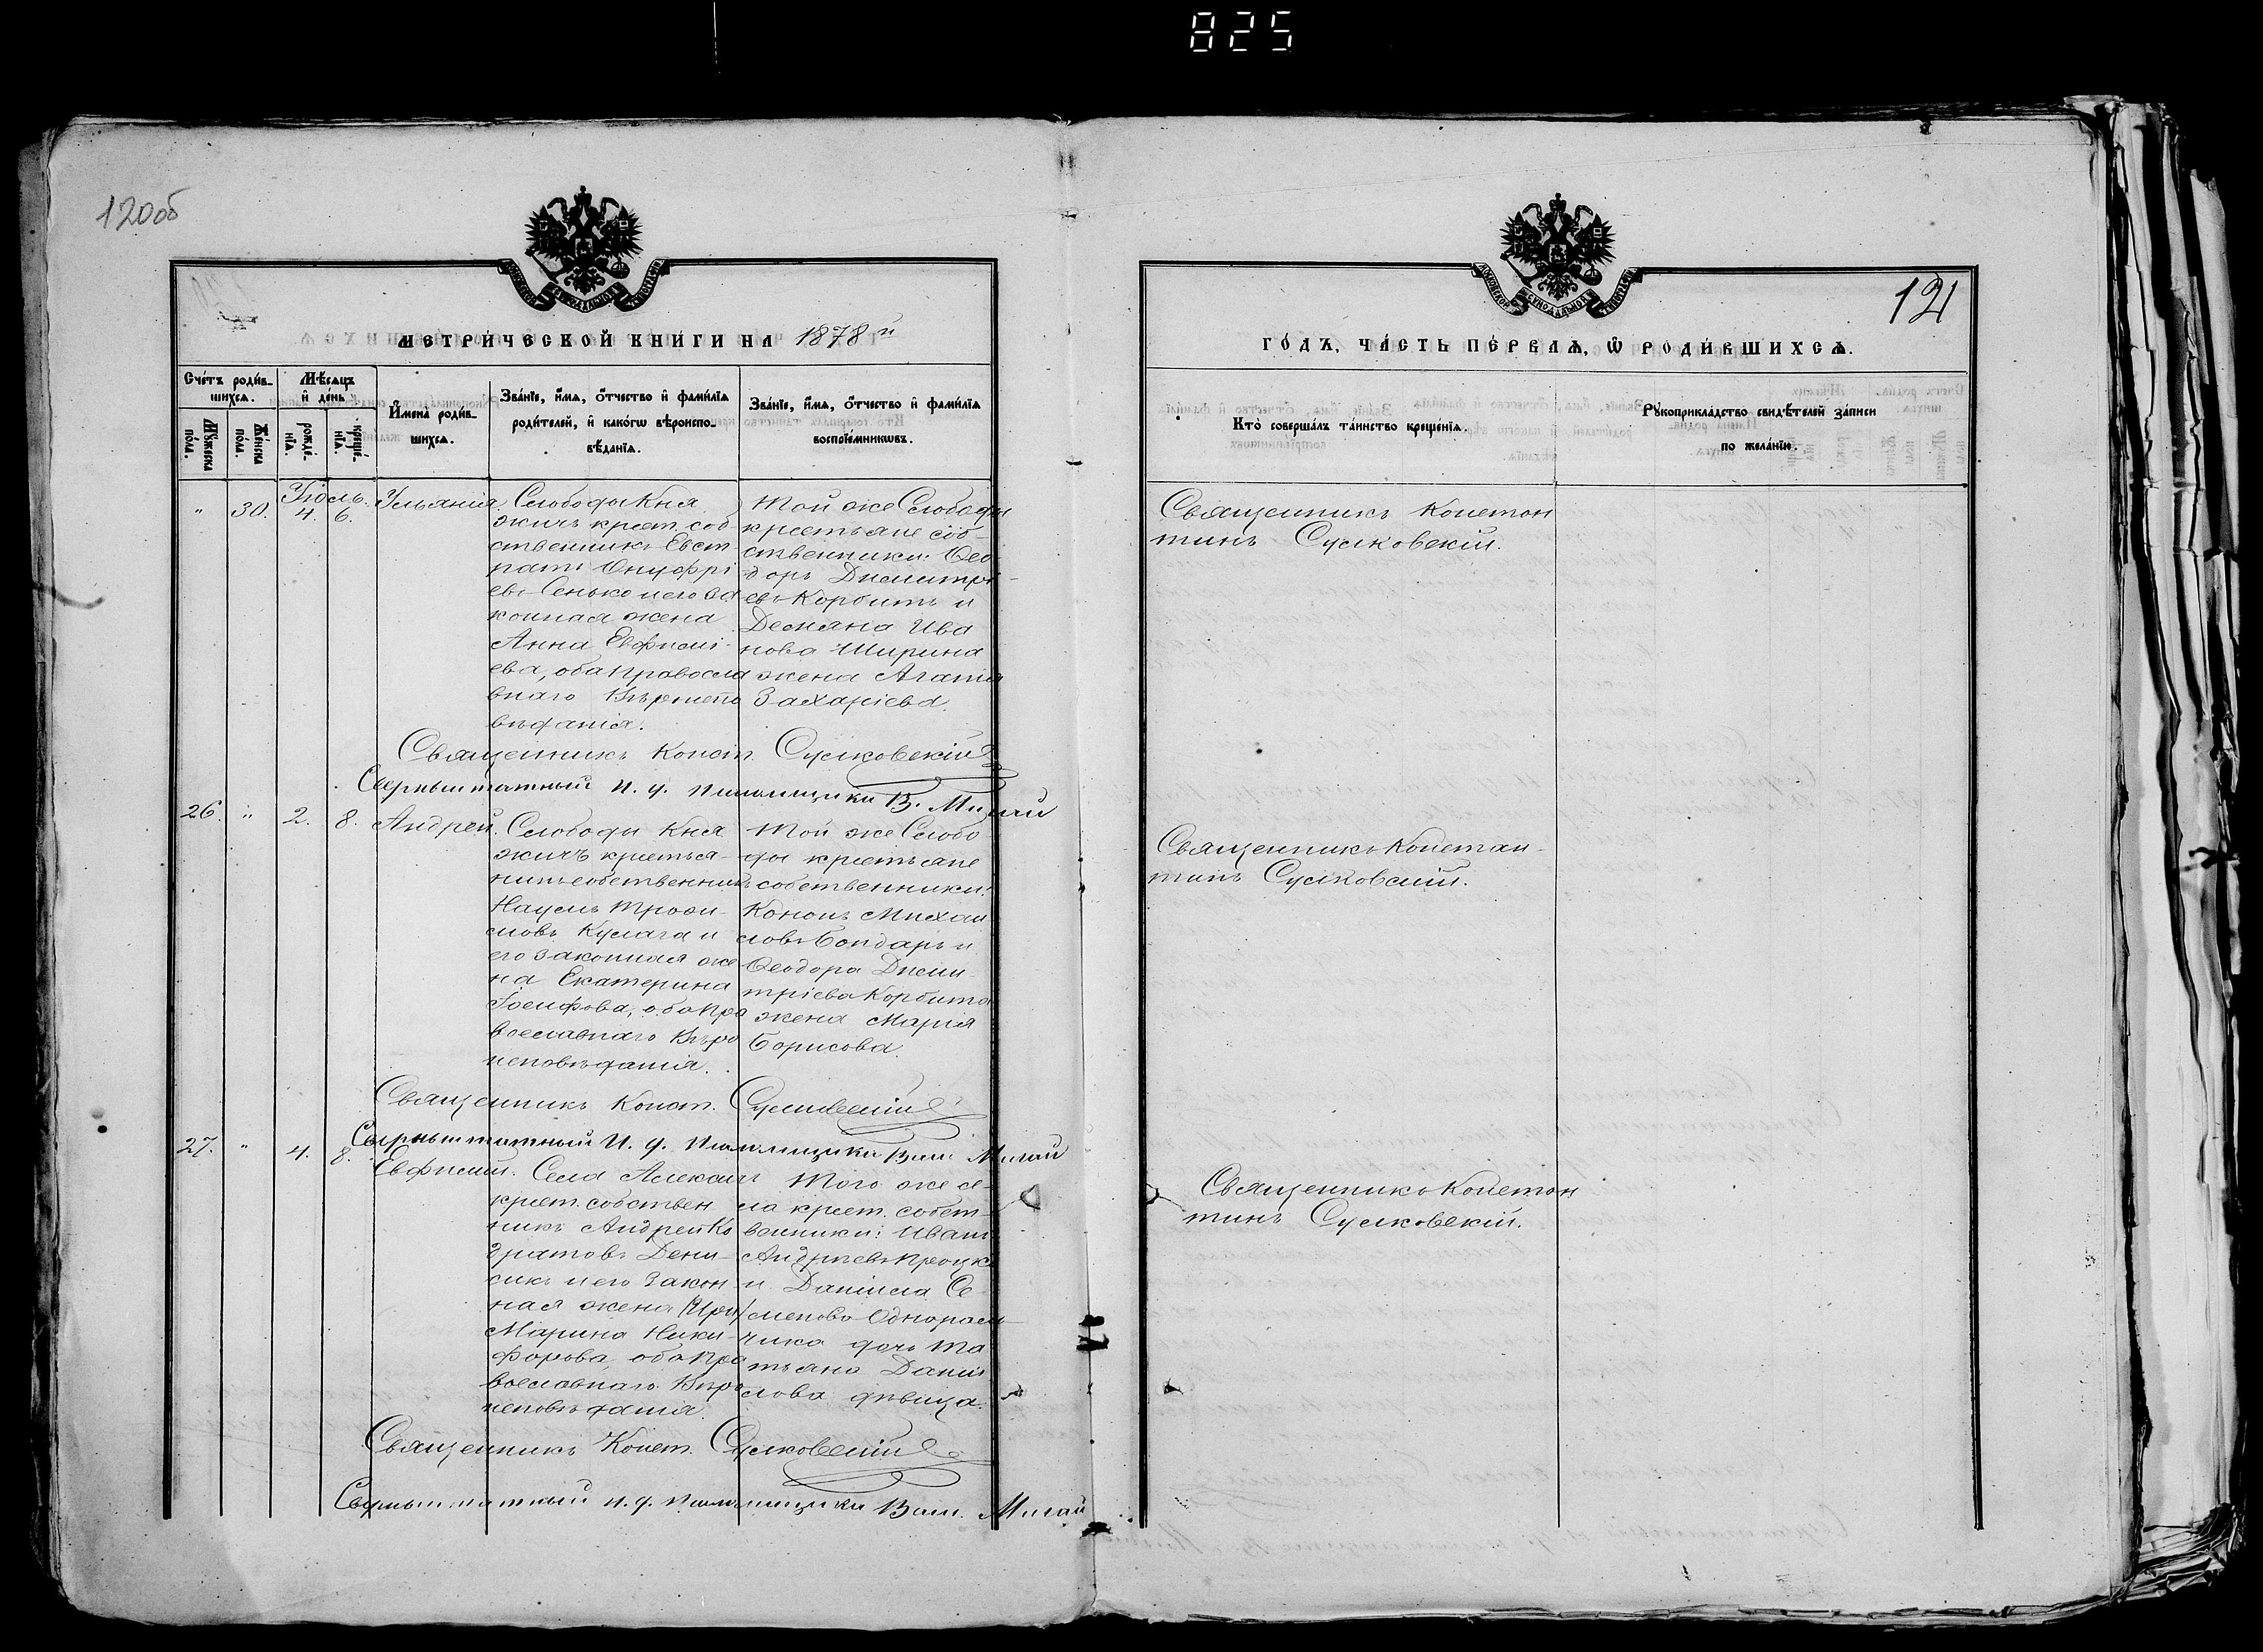 825
120об
МЕТРИЧЕСКОЙ КНИГИ НА 1878й
Счетъ родив-
шихся.
Мѣсяцъ
и день
Имена родив-
шихся.
Званіе, имя, отчество и фамилія
родителей, и какогѡ вѣроиспо-
вѣданія.
Званіе, имя, отчество и фамилія
воспріемникѡвъ.
Мужеска
пола.
Женска
пола.
рожде-
нія.
креще-
нія.
" 30. Іюль 4. 6. Ульянія.
Слободы Кня
жичъ крест. соб
ственникъ Евст
ратъ Онуфрі
евъ Сенько и его за
конная жена
Анна Евфимі-
ева, оба правосла
внаго Вѣроиспо
вѣданія.
Той же Слободы
крестьяне соб-
ственники: Ѳео
доръ Димитрі-
евъ Корбитъ и
Демяна Ива
нова Ширина
жена Агатія
Захаріева.
Священникъ Конст. Сулковскій
Сверхштатный И. д. псаломщика В. Мигай
26. " 2. 8. Андрей.
Слободы Кня
жичъ крестья-
нинъ собственникъ
Наумъ Трофи-
мовъ Кулага и
его законная же
на Екатерина
Іосифова, оба пра
вославнаго Вѣро
исповѣданія.
Той же Слобо
ды крестьяне
собственники:
Кононъ Михаи
ловъ Бондарь и
Ѳеодора Дими-
тріева Корбита
жена Марія
Борисова.
Священникъ Конст. Сулковскій
Сверхштатный И. д. псаломщика Вас. Мигай
27. " 4. 8. Евфимій.
Села
крест. собствен
никъ Андрей Ко
дратовъ Дени-
сикъ и его закон
ная жена
Марина Ники-
форова, оба пра
вославнаго Вѣро
исповѣданія.
Того же се-
ла крест. собст-
венники: Иванъ
Андреевъ
и Даніила Се
менова
чика дочь Та
тьяна Даніи
лова дѣвица.
Священникъ Конст. Сулковскій
Сверхштатный и. д. псаломщика Вас. Мигай
121
ГОДЪ, ЧАСТЬ ПЕРВАЯ, Ѡ РОДИВШИХСЯ.
Кто совершалъ таинство крещенія.
Рукоприкладство свидѣтелей записи
по желанію.
Священникъ Констан
тинъ Сулковскій.
Священникъ Констан-
тинъ Сулковскій.
Священникъ Констан
тинъ Сулковскій.